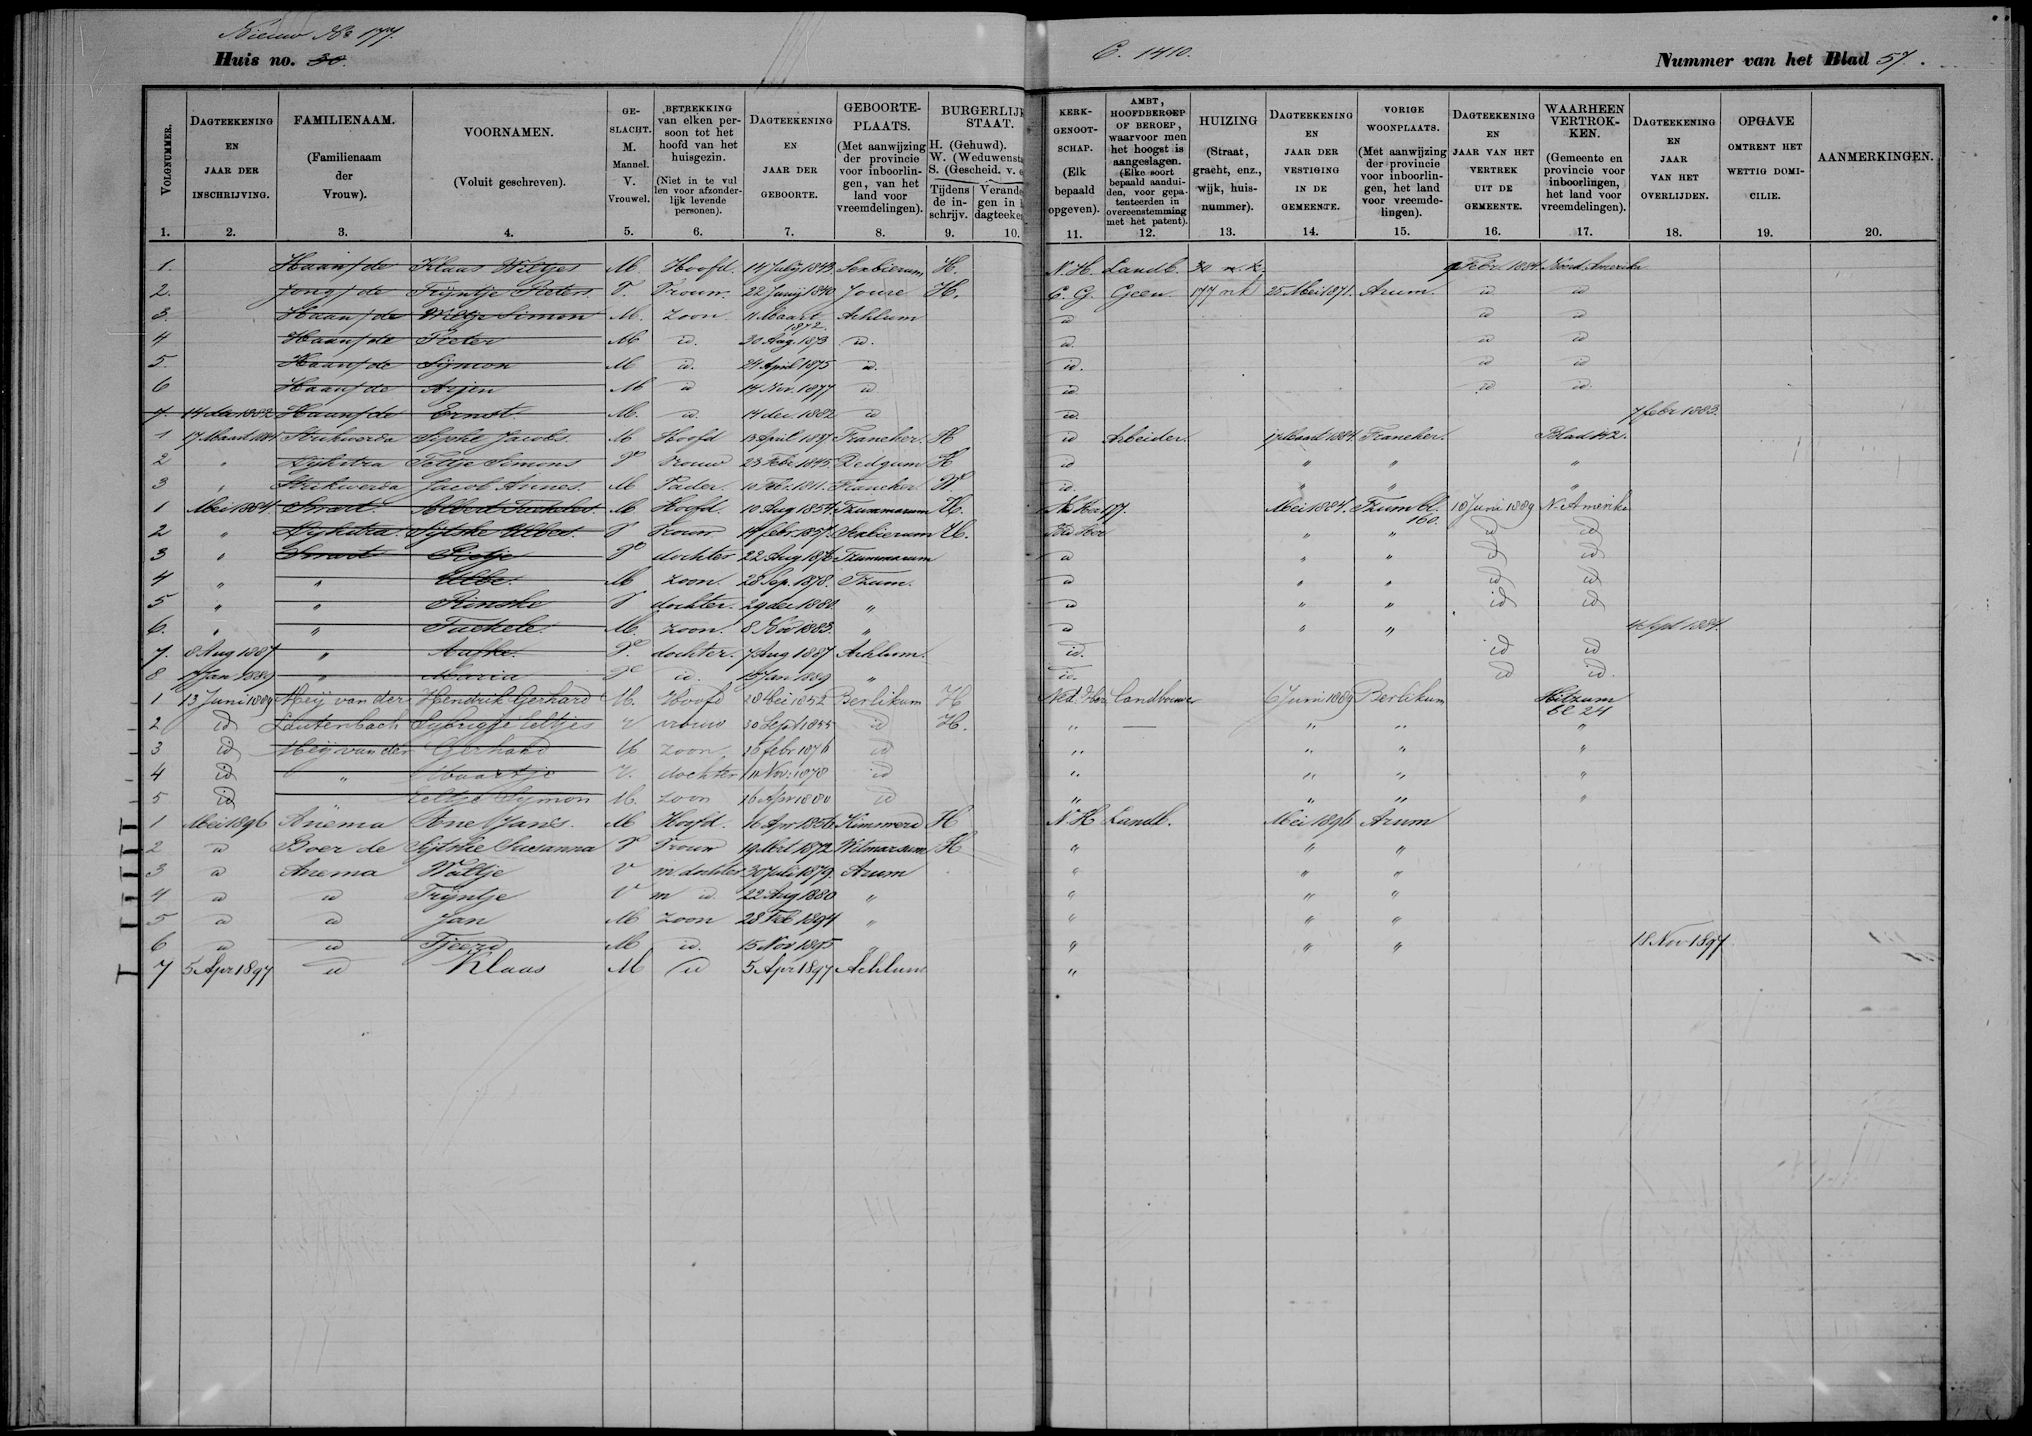 Nieuw No 177.
Huis no. 30.
C. 1410.
Nummer van het Blad 57.
VOLGNUMMER. DAGTEEKENING EN JAAR DER INSCHRIJVING. FAMILIENAAM. (Familienaam der Vrouw). VOORNAMEN. (Voluit geschreven). GE-SLACHT. M. Mannel. V. Vrouwel. BETREKKING van elken per-soon tot het hoofd van het huisgezin. (Niet in te vul len voor afzonder-lijk levende personen). DAGTEEKENING EN JAAR DER GEBOORTE. GEBOORTE-PLAATS. (Met aanwijzing der provincie voor inboorlin-gen, van het land voor vreemdelingen). BURGERLIJK STAAT. H. (Gehuwd). W. (Weduwenst S. (Gescheid. v. e Tijdens de in-schrijv. Verand gen in dagteeke
KERK-GENOOT-SCHAP. (Elk bepaald opgeven). AMBT, HOOFDBEROEP OF BEROEP, waarvoor men het hoogst is aangeslagen. (Elke soort bepaald aandui-den, voor gepa-tenteerden in overeenstemming met het patent). HUIZING (Straat, gracht, enz., wijk, huis-nummer). DAGTEEKENING EN JAAR DER VESTIGING IN DE GEMEENTE. VORIGE WOONPLAATS. (Met aanwijzing der provincie voor inboorlin-gen, het land voor vreemde-lingen). DAGTEEKENING EN JAAR VAN HET VERTREK UIT DE GEMEENTE. WAARHEEN VERTROK-KEN. (Gemeente en provincie voor inboorlingen, het land voor vreemdelingen). DAGTEEKENING EN JAAR VAN HET OVERLIJDEN. OPGAVE OMTRENT HET WETTIG DOMI-CILIE. AANMERKINGEN.
1. 2. 3. 4. 5. 6. 7. 8. 9. 10. 11. 12. 13. 14. 15. 16. 17. 18. 19. 20.
1. Haan / de Klaas Wiltjes M. Hoofd. 14 July 1843. Sexbierum H. N. H. Landb. Febr. 1884. Noord-Amerika
2. Jong / de Trijntje Pieters V. Vrouw. 22 Junij 1840. Joure H. C. G. Geen 177 nk 25 Mei 1871. Arum. id id
3. Haan / de Wiltje Simon M. Zoon 11 Maart 1872. Achlum id id id
4 Haan / de Pieter M id. 30 Aug. 1873 id. id. id id
5. Haan / de Symon M id. 24 April 1875 id. id. id id
6 Haan / de Arjen M id 14 Nov. 1877 id id id id
7. 14 dec 1882 Haan / de Ernst. M. id. 14 dec. 1882 id id. 7 febr 1883.
1 17 Maart 1884 Strikwerda Sipke Jacobs M Hoofd 13 April 1837 Franeker. H id Arbeider. 17 Maart 1884. Franeker. Blad 142.
2 " Dijkstra Feltje Simons V Vrouw 23 Febr. 1845. Dedgum H id " " "
3 " Strikwerda Jacob Annes. M Vader. 10 Febr. 1811. Franeker W id. " " "
1 Mei 1884. Smart. Albert M Hoofd. 10 Aug 1854. Tzummarum H. N Her 177. Mei 1884. Tzum bl. 160. 18 Juni 1889 N-Amerika
2 " Dijkstra. Sytske Ulbes. V Vrouw 14 febr. 1857. Sexbierum H. Ned Her " " id id
3 " Smart Pietje V dochter 22 Aug 1876 Tzummarum id " " id id
4 " " Ulbe. M zoon. 28 Sep. 1878. Tzum. id " " id id
5 " " Rinske V dochter. 29 dec 1880. " id " " id id
6. " " Taekele. M. zoon. 8 Nov 1883. " id " " 4 Sept 1884.
7. 8 Aug 1887 " Aafke. V. dochter. 7 Aug 1887 Achlum. id. id id
8 Jan 1889 " Maria V id. Jan 1889 " id. id id.
1 13 Juni 1889 Meij van der Hendrik Gerhard M. Hoofd 28 Mei 1852 Berlikum H Ned. Her Landbouwer 6 Juni 1889 Berlikum Hitzum bl 24
2 id Lautenbach Sybrigje Eeltjes V vrouw 30 Sept 1855 id H. " — " " "
3 id Meij van der Gerhard M zoon. 16 febr 1876 id " " " "
4 id " Maartje V. dochter 10 Nov. 1878 id " " " "
5 id Eeltje Symon M. zoon 16 Apr 1880 id " " " "
1 Mei 1896 Anema Ane Jans. M Hoofd. 16 Apr 1856 Kimswerd H N. H Landb. Mei 1896 Arum
2 id Boer de Sijtske Susanna V Vrouw 19 Mrt 1872 Witmarsum H " " "
3 id Anema Waltje V m dochter 30 Juli 1879. Arum " " "
4 id id Trijntje V m id. 22 Aug 1880 " " " "
5 id id Jan M zoon 28 Feb 1894 " " " "
6 id id Tjeerd M id. 15 Nov 1895 " " " " 18 Nov 1897
7 5 Apr 1897 id Klaas M id 5 Apr 1897 Achlum "